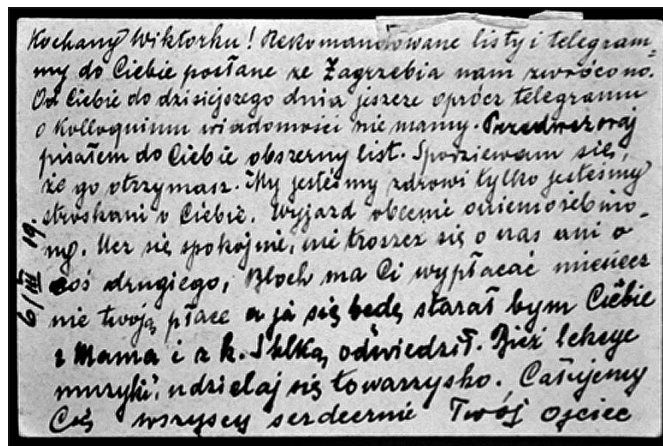 Kochany Wiktorku! Rekomandowane listy i telegram=
my do Ciebie posłane ze Zagrzebia nam zwrócono.
Od Ciebie do dzisiejszego dnia jeszcze oprócz telegramu
o Kolloquium wiadomości nie mamy. Przedwczoraj
pisałem do Ciebie obszerny list. Spodziewam się,
że go otrzymasz. My jesteśmy zdrowi tylko jesteśmy
stroskani o Ciebie. Wyjazd obecnie uniemożebnio-
ny. Ucz się spokojnie, nie troszcz się o nas ani o
coś drugiego, Bloch ma Ci wypłacać
nie twoją płace a ja się będę starał bym Ciebie
z Mamą i z k. odwiedził. Bierz lekcye
muzyki, udzielaj się towarzysko. Całujemy
Cię wszyscy serdecznie Twój Ojciec
6/III 19.